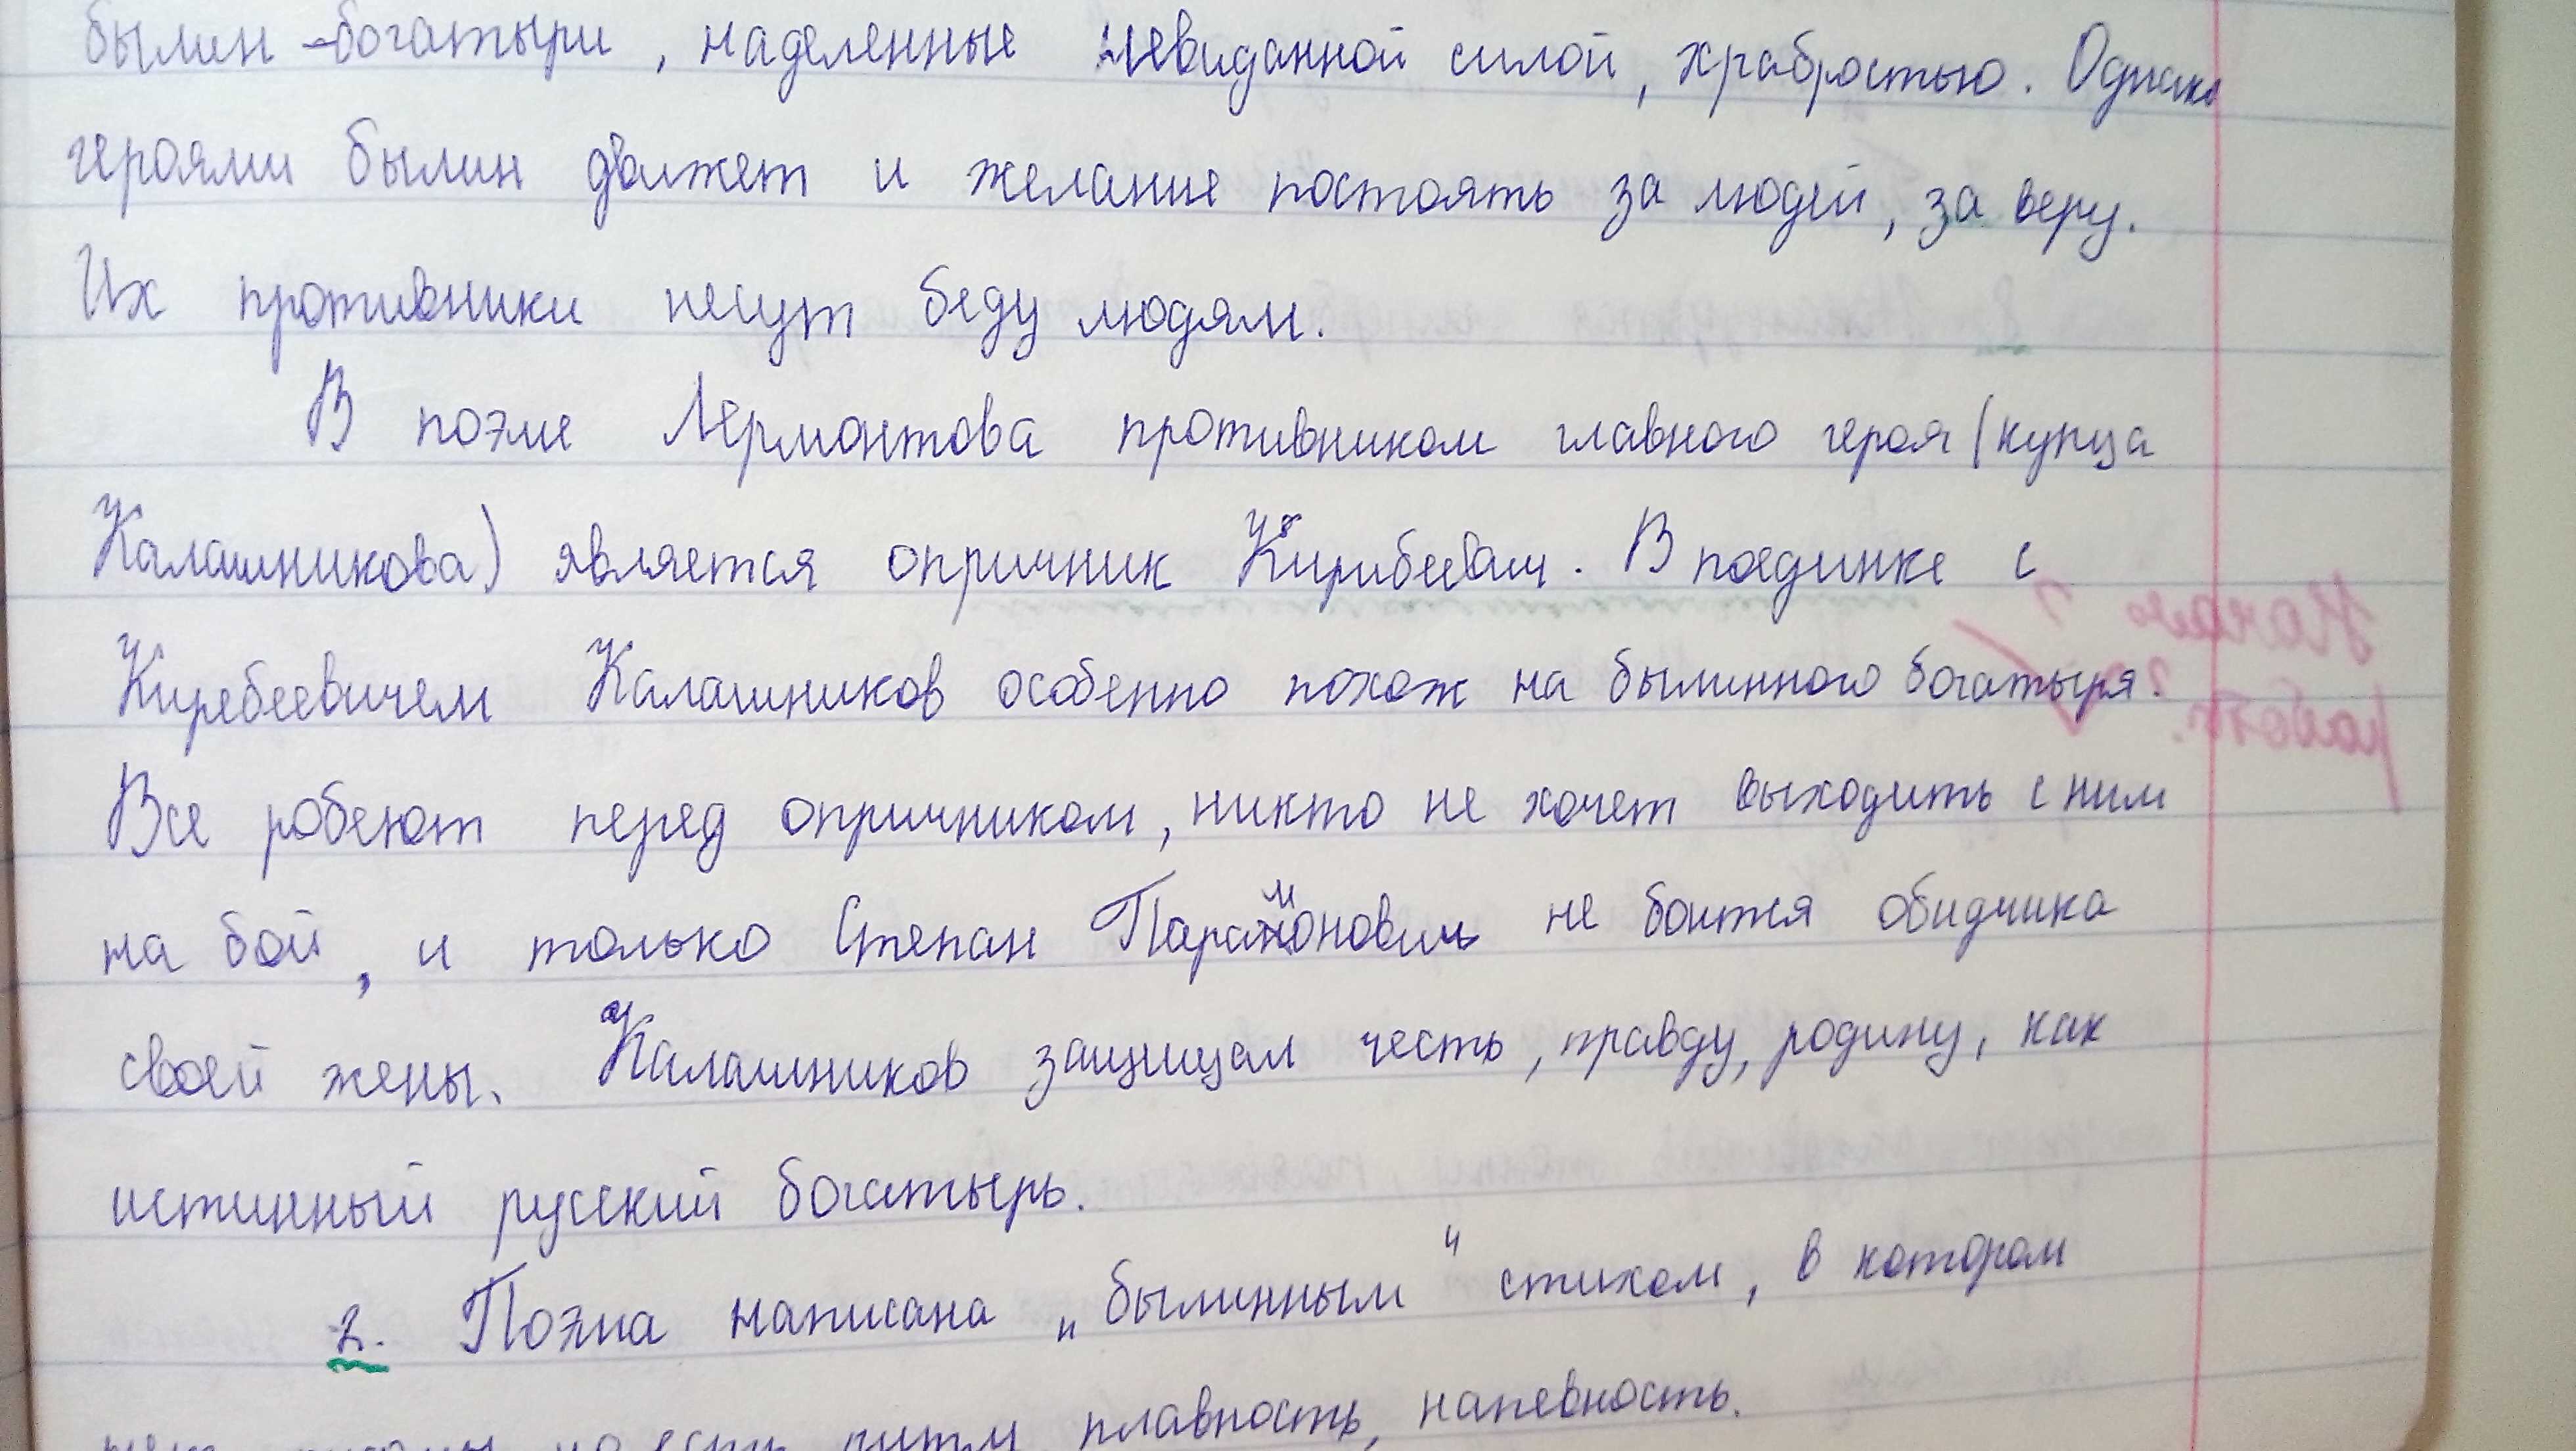 былин - богатыри, наделенные невиданной силой, храбростью. Однако
героями былин движет и желание постоять за людей, за веру.
Их противники несут беду людям.
В поэме Лермонтова противником главного героя (купца
Калашникова) является опричник Кирибеевич. В поединке с
Киребеевичем Калашников особенно похож на былинного богатыря.
Все робеют перед опричником, никто не хочет выходить с ним
на бой, и только Степан Парамонович не боится обидчика
своей жены. Калашников защищал честь, правду, родину, как
истинный русский богатырь.
2. Поэма написана „былинным“ стихом, в котором
ритм, плавность, напевность.